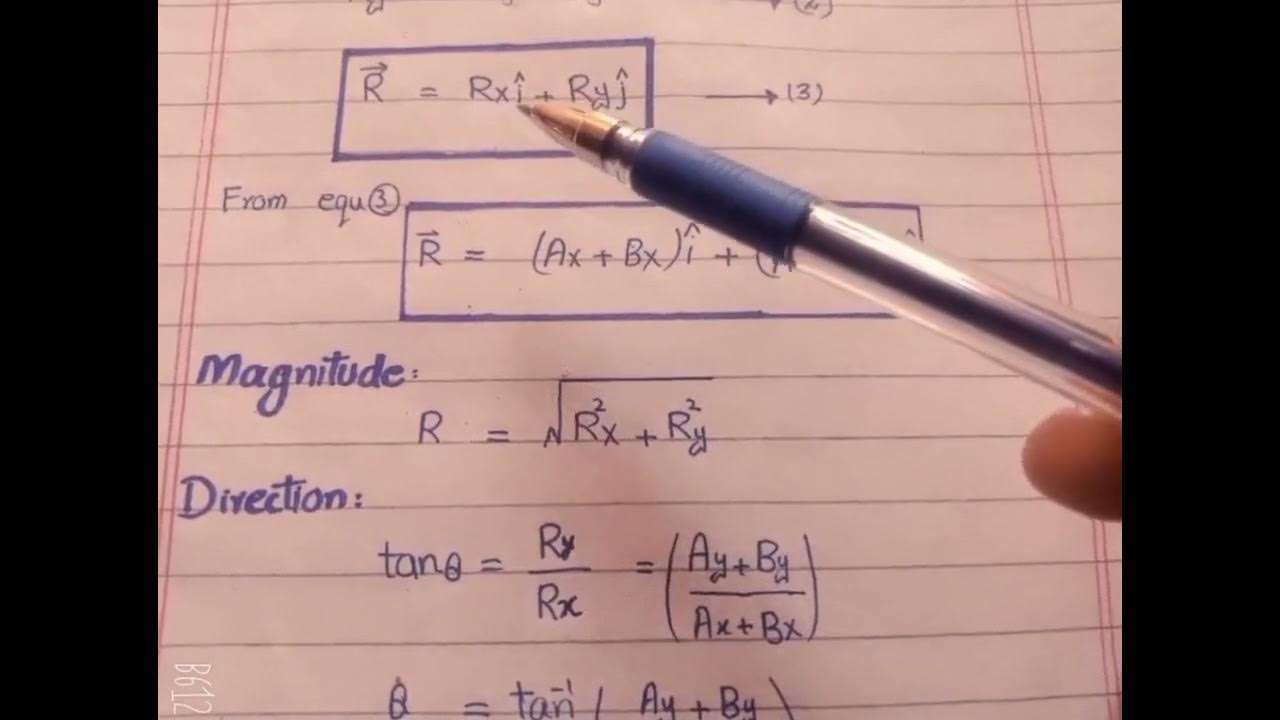 (2)
R⃗ = Rxî + Ryĵ → (3)
From equ ③
R⃗ = (Ax + Bx)î + (
Magnitude:
R = √R²x + R²y
Direction:
tanθ = Ry/Rx = (Ay + By/Ax + Bx)
θ = tan⁻¹ ( Ay + By )
B612